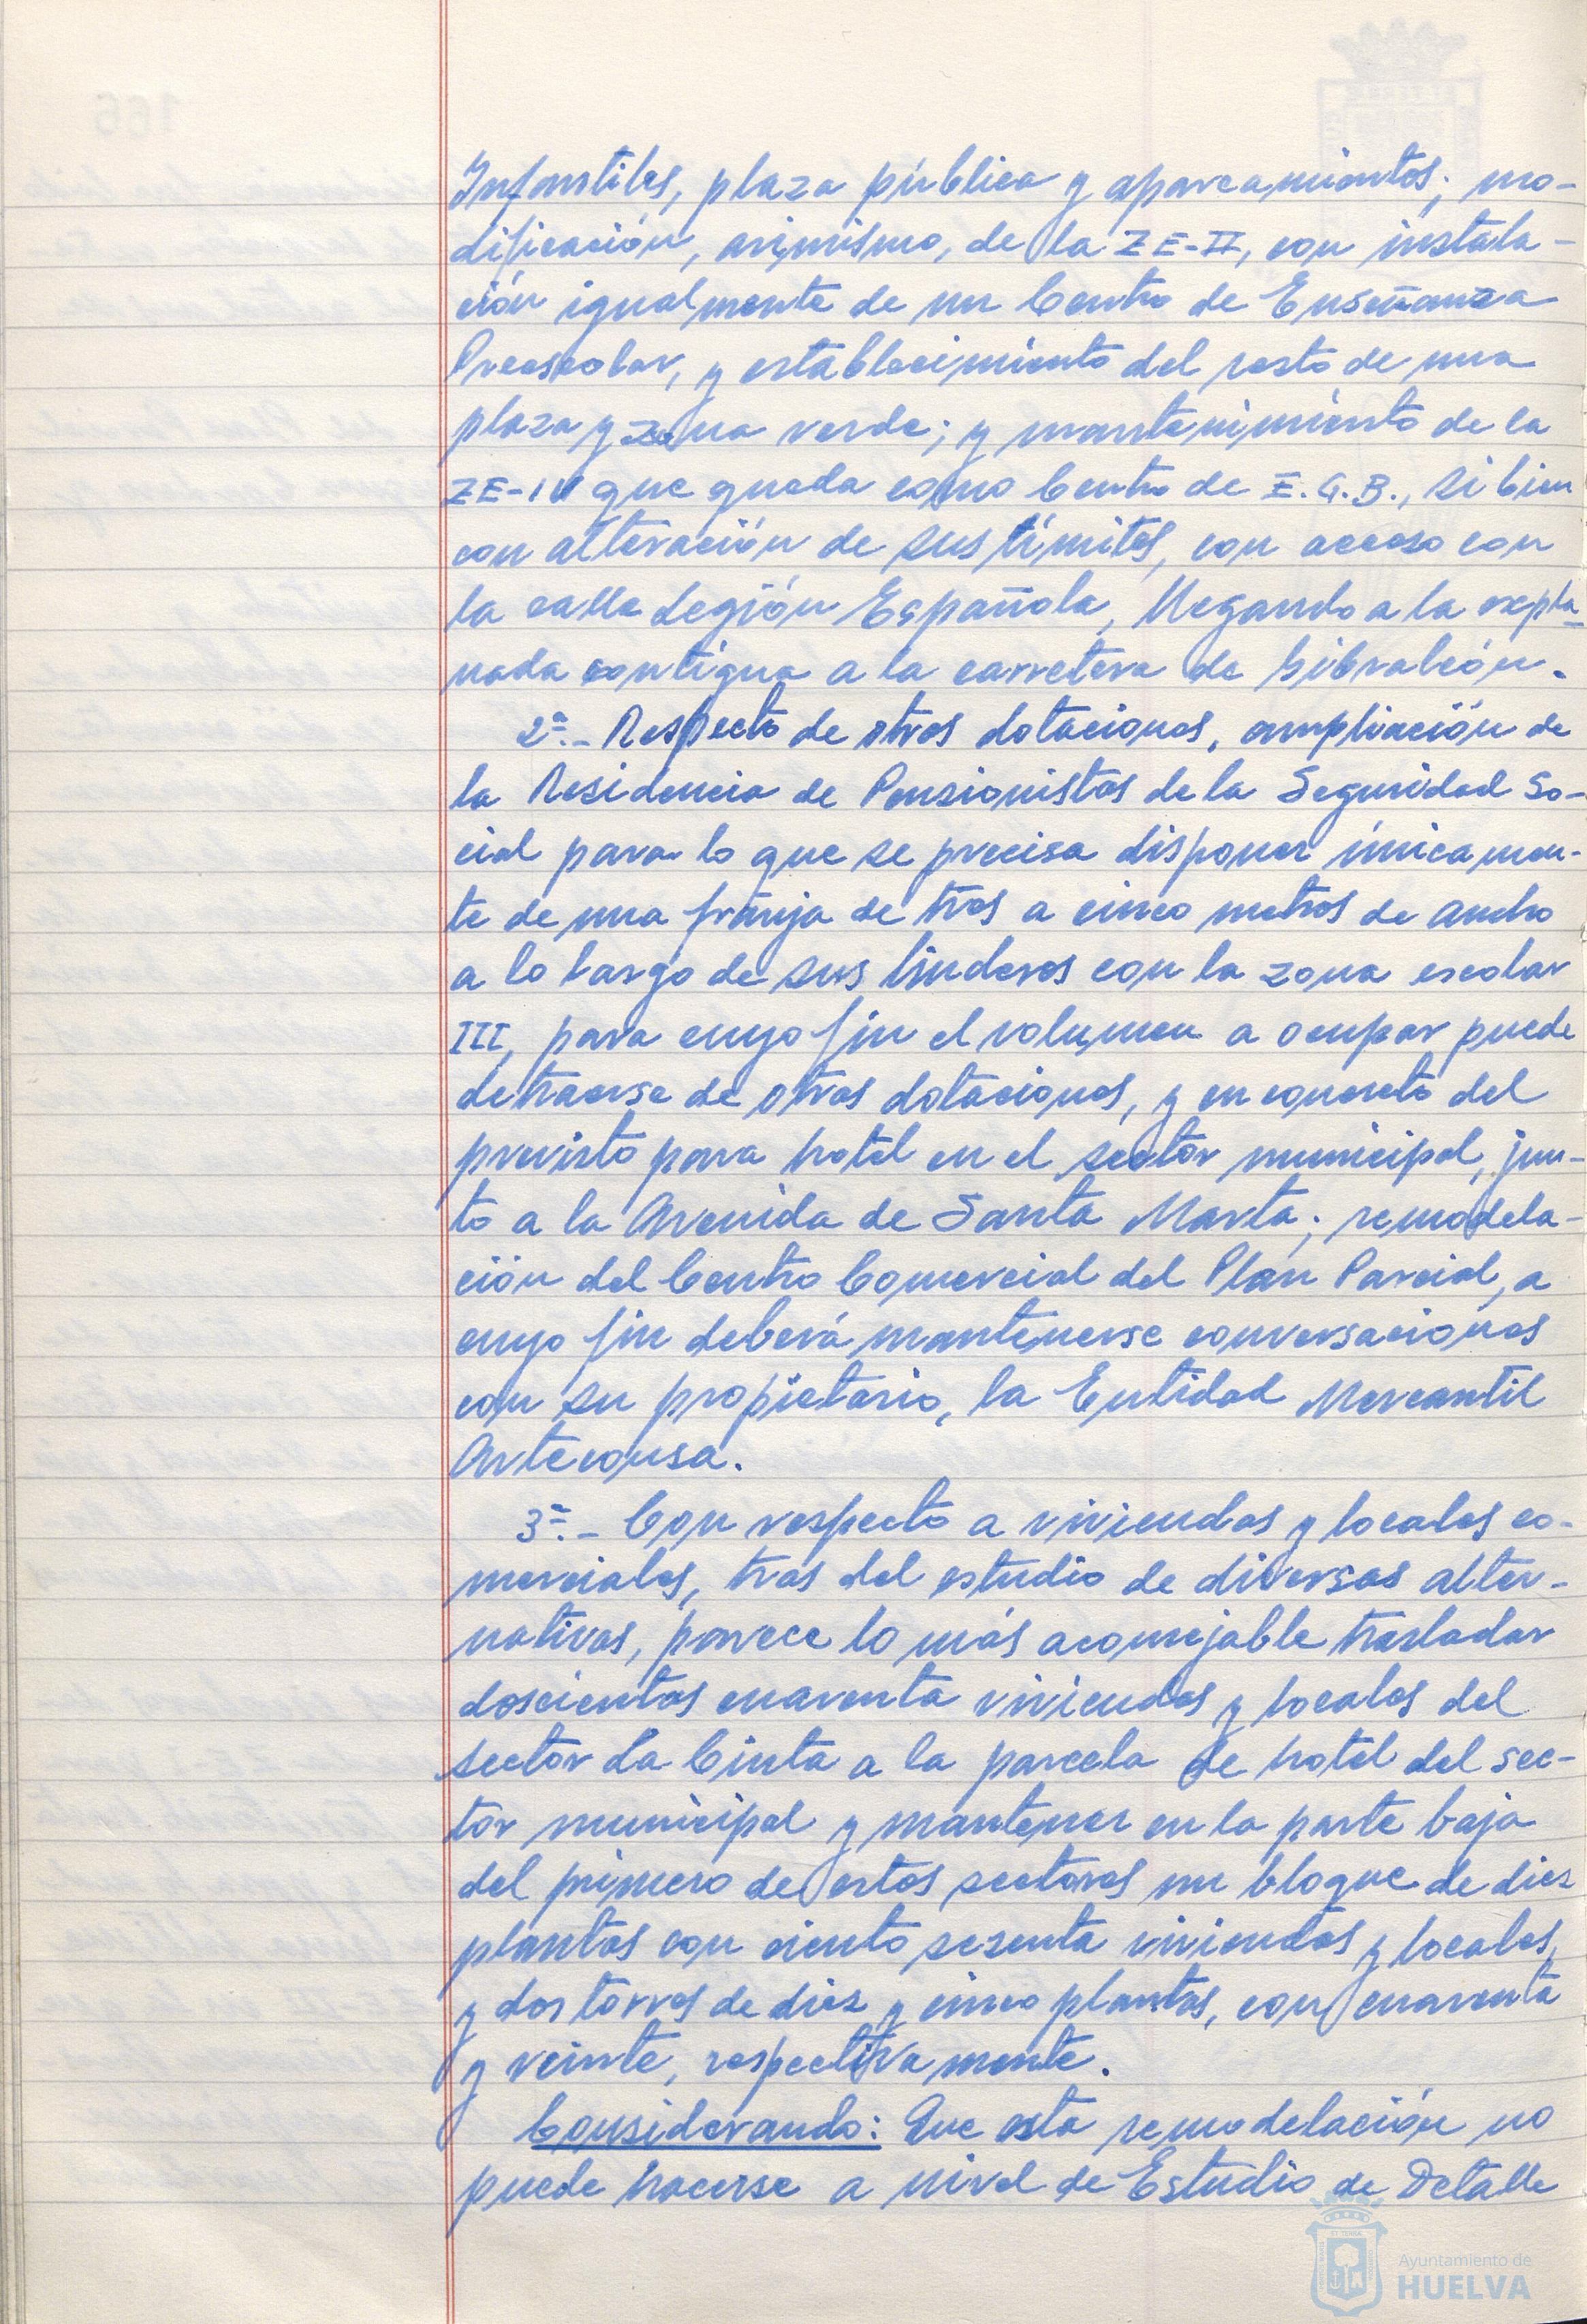 Infantiles, plaza pública y aparcamientos; mo-
dificación, asimismo, de la ZE-II, con instala-
ción igualmente de un Centro de Enseñanza
Preescolar, y establecimiento del resto de una
plaza y zona verde; y mantenimiento de la
ZE-IV que queda como Centro de E.G.B., si bien
con alteración de sus límites, con acceso con
la calle Legión Española, llegando a la expla-
nada contigua a la carretera de Gibraleón.
2º.- Respecto de otras dotaciones, ampliación de
la Residencia de Pensionistas de la Seguridad So-
cial para lo que se precisa disponer únicamen-
te de una franja de tres a cinco metros de ancho
a lo largo de sus linderos con la zona escolar
III, para cuyo fin el volumen a ocupar puede
detraerse de otras dotaciones, y en concreto del
previsto para hotel en el sector municipal, jun-
to a la Avenida de Santa Marta; remodela-
ción del Centro Comercial del Plan Parcial, a
cuyo fin deberá mantenerse conversaciones
con su propietario, la Entidad Mercantil
Arteconsa.
3º.- Con respecto a viviendas y locales co-
merciales, tras del estudio de diversas alter-
nativas, parece lo más aconsejable trasladar
doscientas cuarenta viviendas y locales del
sector La Cinta a la parcela de hotel del sec-
tor municipal y mantener en la parte baja
del primero de estos sectores un bloque de diez
plantas con ciento sesenta viviendas y locales,
y dos torres de diez y cinco plantas, con cuarenta
y veinte, respectivamente.
Considerando: Que esta remodelación no
puede hacerse a nivel de Estudio de Detalle
Ayuntamiento de
HUELVA